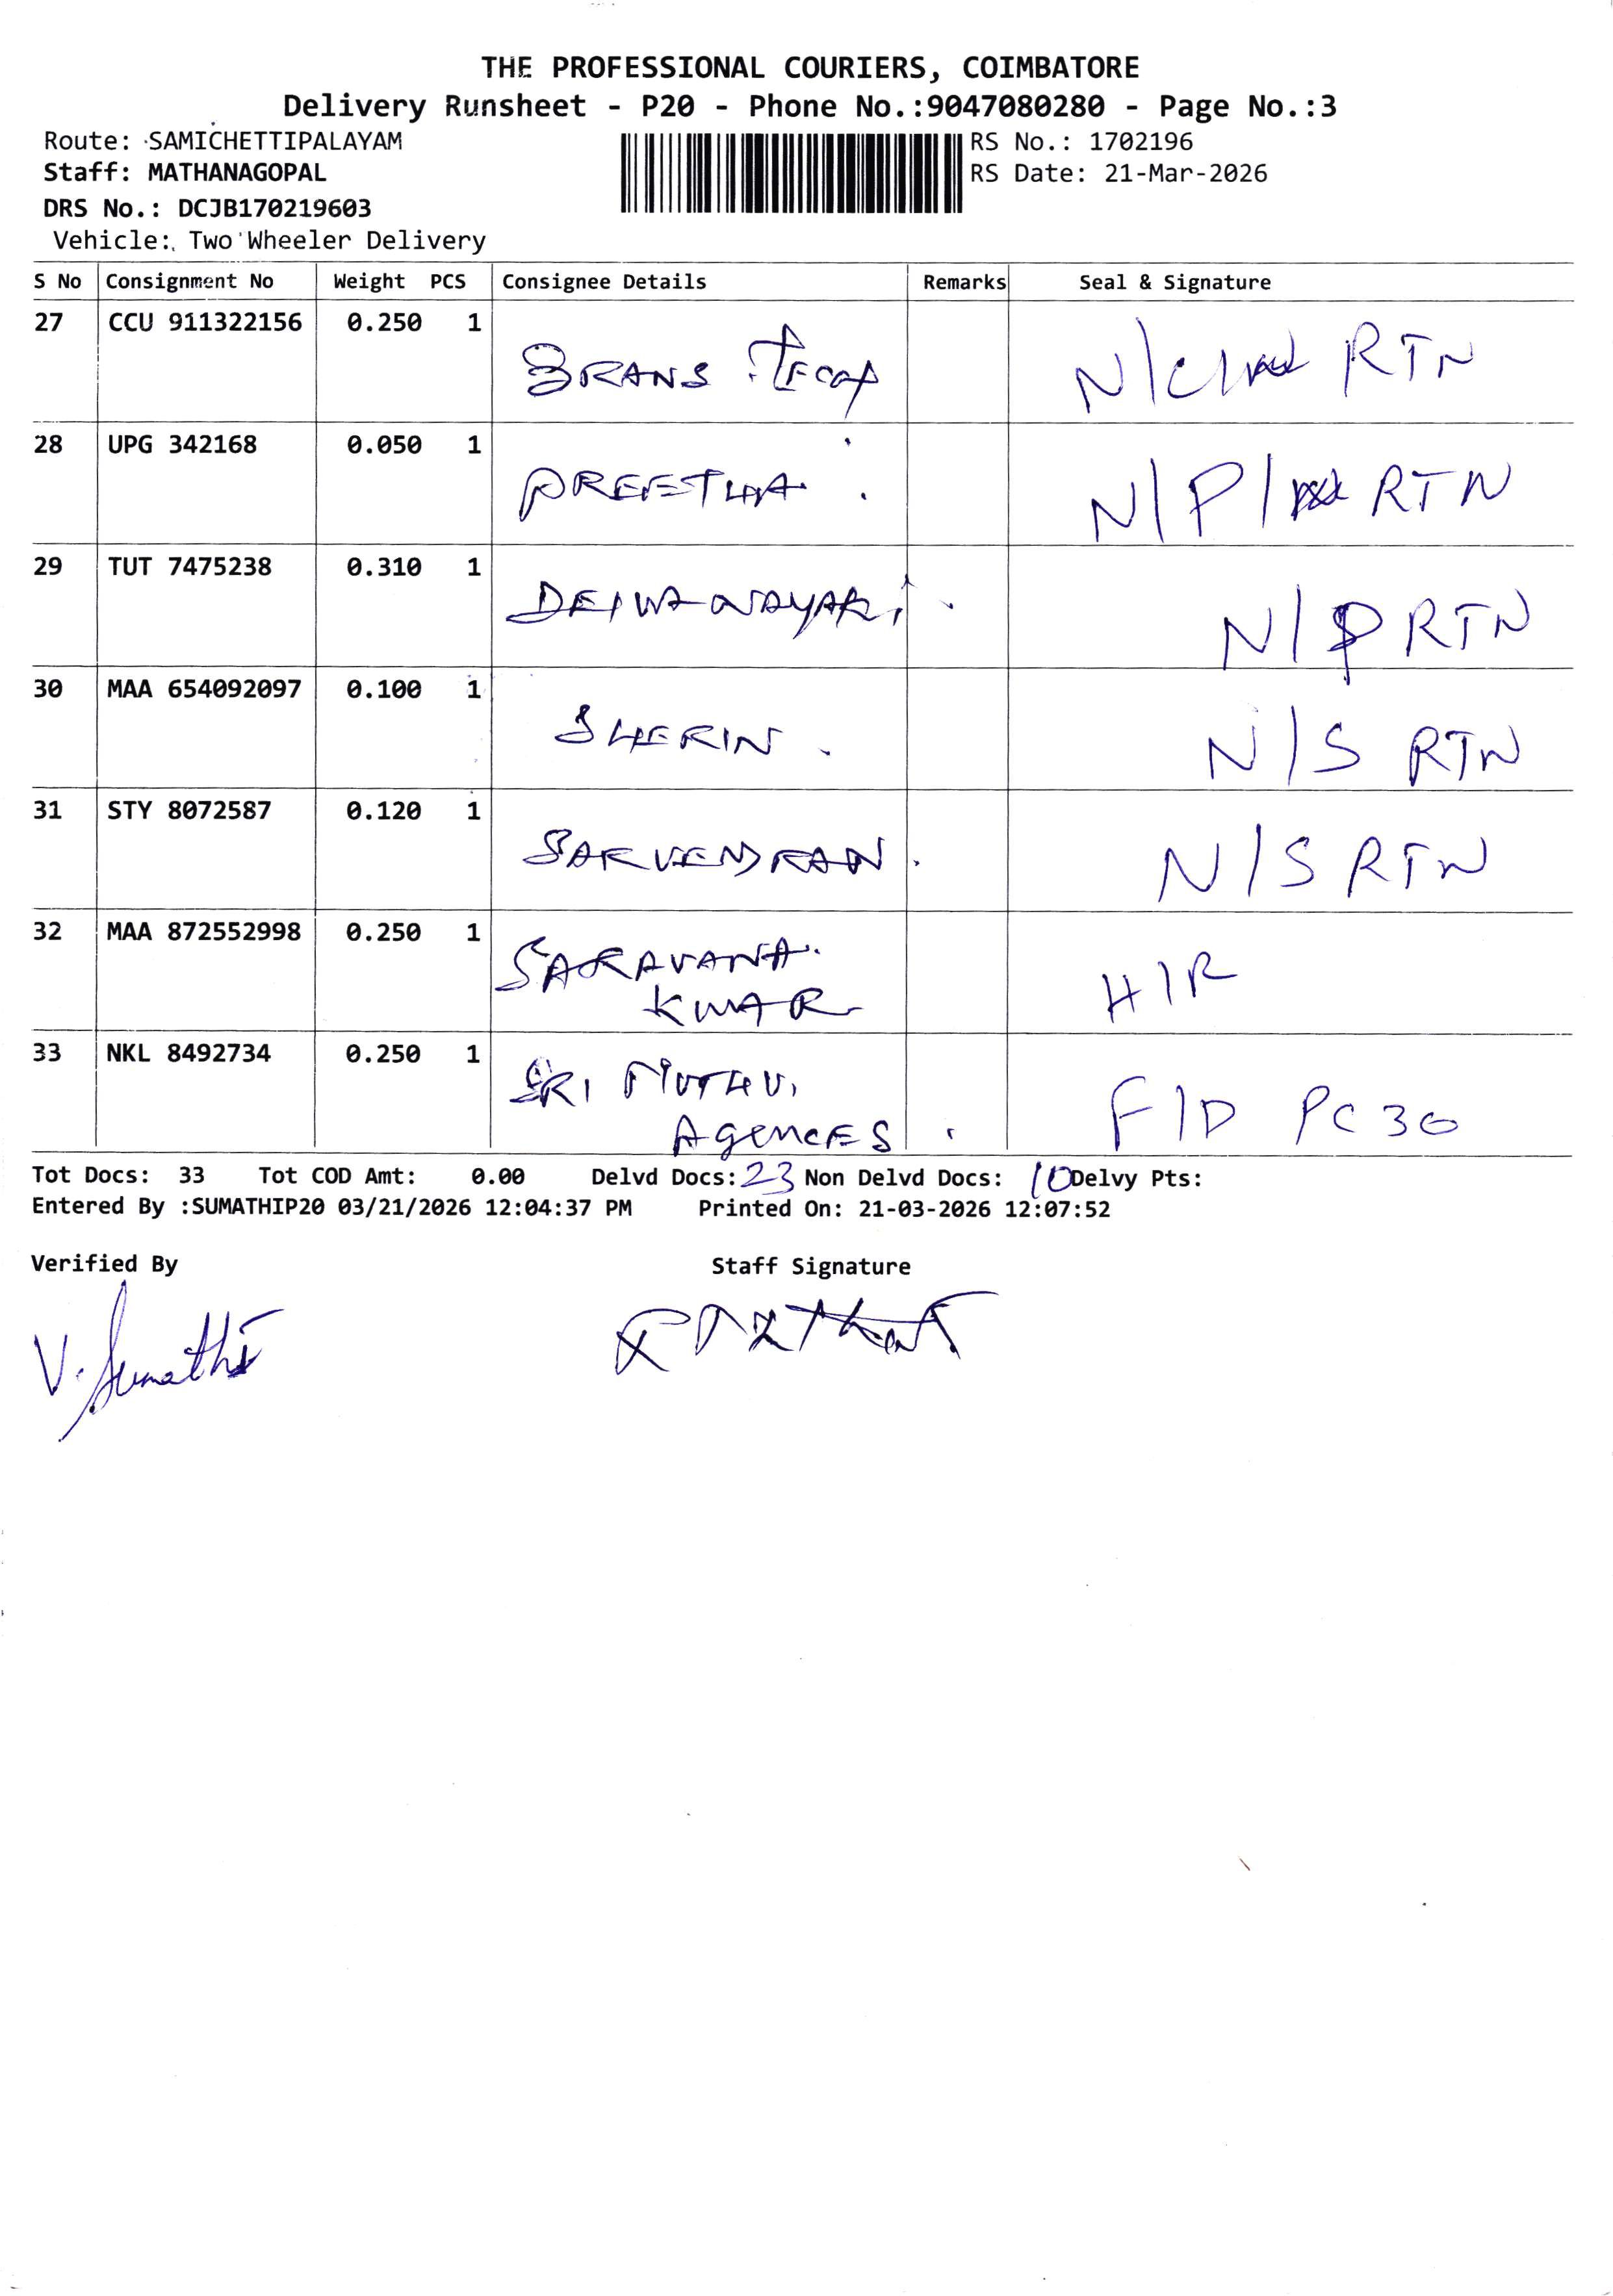 THE PROFESSIONAL COURIERS, COIMBATORE
Delivery Runsheet - P20 - Phone No.:9047080280 - Page No.:3
Route: SAMICHETTIPALAYAM
RS No.: 1702196
Staff: MATHANAGOPAL
RS Date: 21-Mar-2026
DRS No.: DCJB170219603
Vehicle: Two Wheeler Delivery
S No Consignment No Weight PCS Consignee Details Remarks Seal & Signature
27 CCU 911322156 0.250 1 BRANS RTN
28 UPG 342168 0.050 1 PREETHA. N/P/ RTN
29 TUT 7475238 0.310 1 DEIWANAYAKI N/P RTN
30 MAA 654092097 0.100 1 SHERIN. N/S RTN
31 STY 8072587 0.120 1 SARVENDRAN. N/S RTN
32 MAA 872552998 0.250 1 SARAVANA. H/R
KUMAR
33 NKL 8492734 0.250 1 SRI MUTHU F/D PC 30
AgencES
Tot Docs: 33 Tot COD Amt: 0.00 Delvd Docs: 23 Non Delvd Docs: 10 Delvy Pts:
Entered By :SUMATHIP20 03/21/2026 12:04:37 PM Printed On: 21-03-2026 12:07:52
Verified By Staff Signature
V. Sumathi